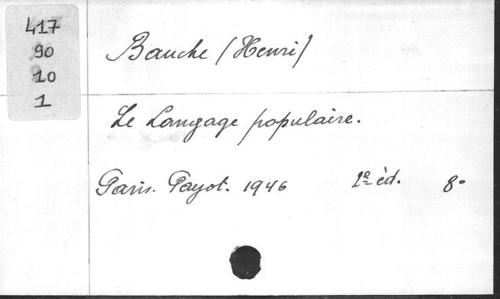 417
90
10
1
Bauche (Henri)
Le Langage populaire.
Paris. Payot. 1946 2e éd. 8°